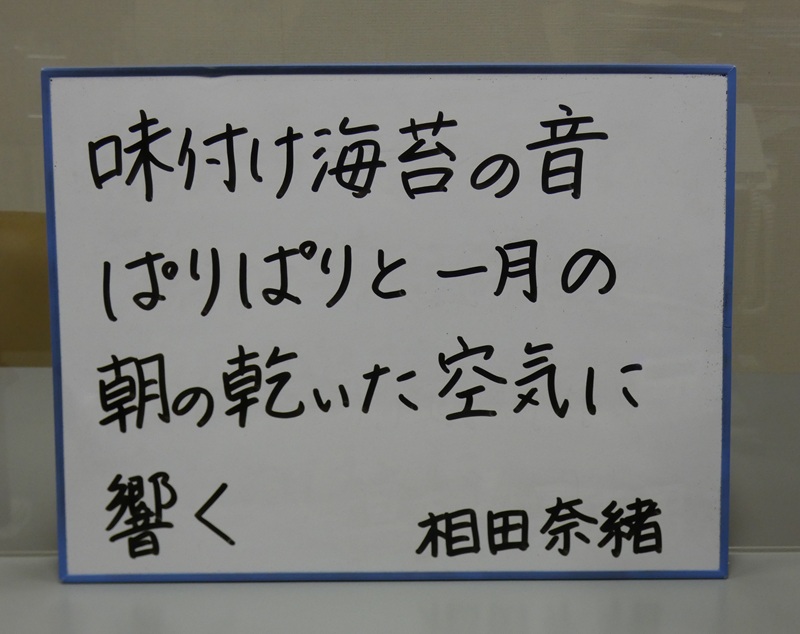 味付け海苔の音
ぱりぱりと一月の
朝の乾いた空気に
響く 相田奈緒